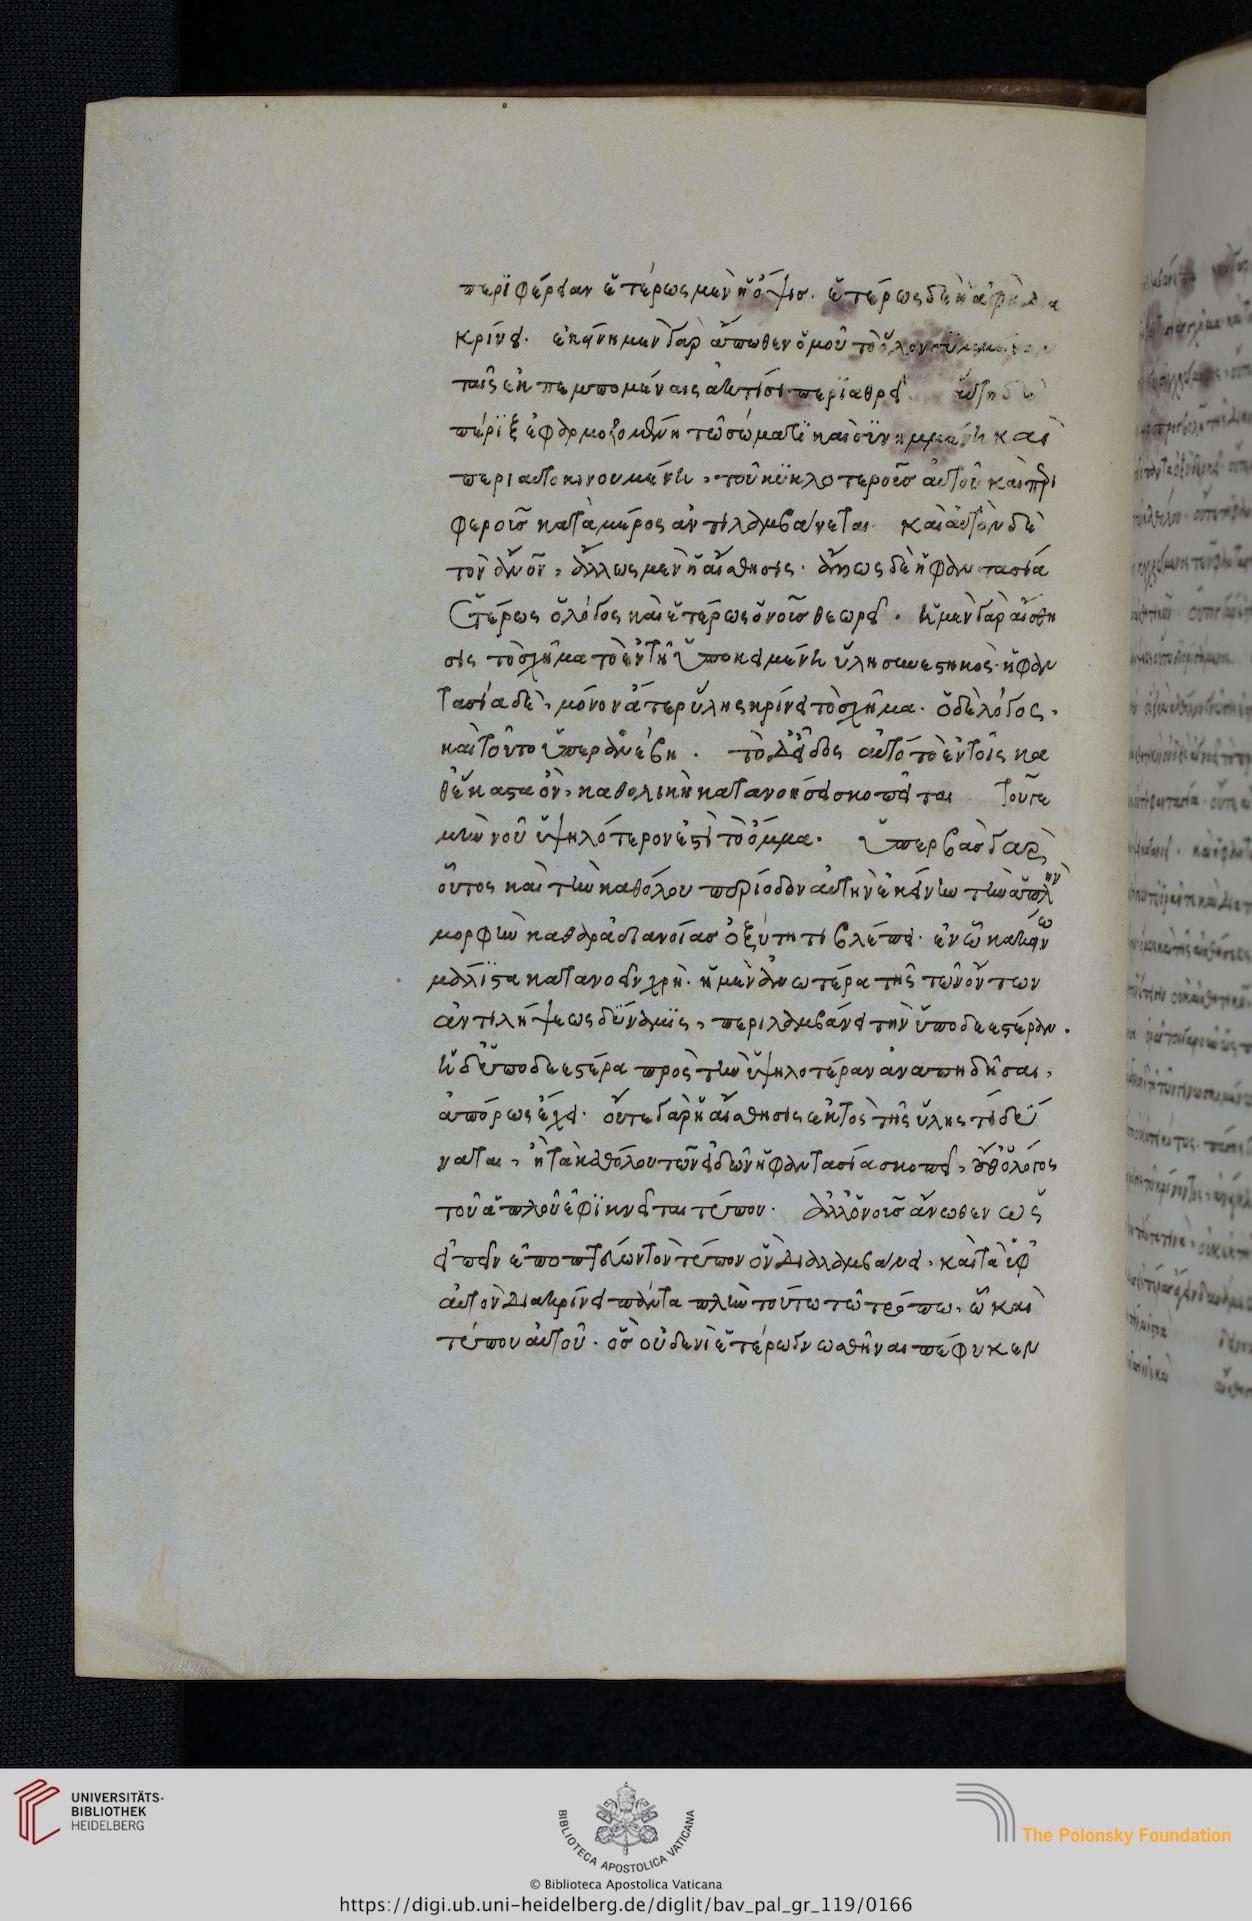 περϊφέρειαν ἑτέρως μὲν ἡ ὄψισ. ἑτέρως δὲ ἡ ἁφὴ
κρίνει. ἐκείνη μὲν γὰρ ἄπωθεν ὁμοῦ τὸ ὅλον
ταῖς ἐκπεμπομέναις ἀκτίσι περϊαθρεῖ. αὕτη δὲ
πέριξ ἐφαρμοζομένη τῶ σώματϊ καὶ σϋνημμένη καὶ
περι αὐτο κινουμένη, τοῦ κϋκλοτεροῦσ αὐτοῦ καὶ περι
φεροῦσ κατὰ μέρος ἀντιλαμβάνεται καὶ αὐτὸν δὲ
τὸν ἀνον, ἄλλως μὲν ἡ αἴσθησις. ἄλλως δὲ ἡ φαντασία
ἑτέρως ὁ λόγος καὶ ἑτέρως ὁ νοῦσ θεωρεῖ. ἡ μὲν γὰρ αἴσθη
σις τὸ σχῆμα τὸ ἐν τῆ ὑποκειμένη ὕλη συνεστηκὸς. ἡ φαν
τασία δὲ, μόνον ἄτερ ὕλης κρίνει τὸ σχῆμα. ὁ δὲ λόγος,
καὶ τοῦτο ὑπερανέβη. τὸ δ' εἶδος αὐτό τὸ ἐν τοῖς κα
θ' ἕκαστα ὂν, καθολικῆ κατανοήσει σκοπεῖται τοῦ γε
μὴν νοῦ ὑψηλότερον ἐστὶ τὸ ὄμμα. ὑπερβὰσ γὰρ
οὗτος καὶ τὴν καθόλου περίοδον αὐτὴν ἐκείνην τὴν ἁπλην
μορφὴν καθαρᾶ διανοίασ ὀξύτητι βλέπει. ἐν ὧ κακείνω
μάλϊστα κατανοεῖν χρὴ. ἡ μὲν ἀνωτέρα τῆς τῶν ὄντων
ἀντιλήψεως δύναμις, περιλαμβάνει τὴν ὑποδεεστέραν.
ἡ δ' ὑποδεεστέρα πρὸς τὴν ὑψηλοτέραν ἀναπηδῆσαι,
ἀπόρως ἔχει. οὔτε γὰρ ἡ αἴσθησις ἐκτὸς τῆς ὕλης τί δύ
ναται, ἢ τὰ καθόλου τῶν εἰδῶν ἡ φαντασία σκοπεῖ, οὔθ' ὁ λόγος
τοῦ ἁπλοῦ ἐφϊκνεῖται τύπου. ἀλλ' ὁ νοῦσ ἄνωθεν ὡς
εἰπεῖν ἐποπτεύων τὸν τύπον ὃν διαλαμβάνει, καὶ τὰ ὑφ'
αὐτὸν διακρίνει πάντα πλὴν τούτω τῶ τρόπω, ὧ καὶ
τύπου αὐτοῦ. ὃσ οὐδενὶ ἑτέρω γνωσθῆναι πέφυκεν
UNIVERSITÄTS-
BIBLIOTHEK
HEIDELBERG
BIBLIOTECA APOSTOLICA VATICANA
The Polonsky Foundation
© Biblioteca Apostolica Vaticana
https://digi.ub.uni-heidelberg.de/diglit/bav_pal_gr_119/0166